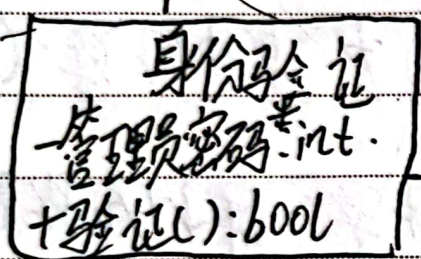 身份验证
-管理员密码:int.
+验证():bool